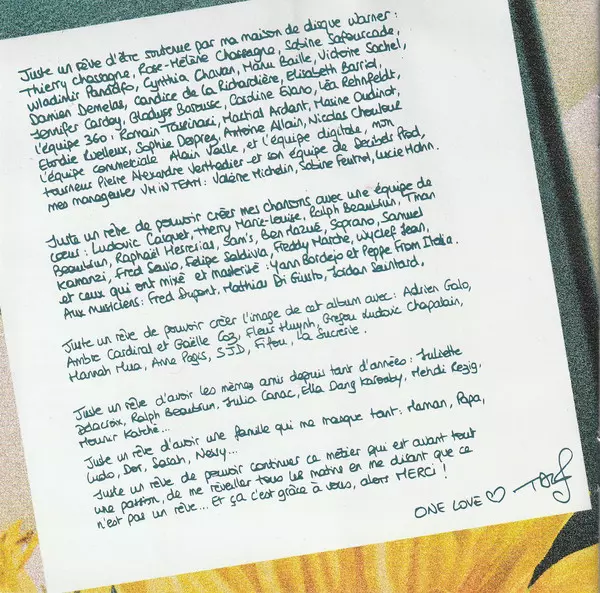 Juste un rêve d'être soutenue par ma maison de disque Warner :
Thierry Chassagne, Rose-Hélène Chassagne, Sabine Safourcade,
Wladimir Pandofo, Cynthia Chavan, Manu Baille, Victoire Sachel,
Damien Demelas, Candice de la Richardière, Elisabeth Barriol,
Jennifer Carday, Gladys Barousse, Caroline Evano, Léa Rehnfeldt,
l'équipe 360 : Romain Tassinari, Martial Ardant, Maxine Oudinot,
Elodie Luelleux, Sophie Desprez, Antoine Allain, Nicolas Chouleur
l'équipe commerciale Alain Veille et l'équipe digitale, mon
tourneur Pierre Alexandre Vertadier et son équipe de Decibels Prod,
mes manageuses VMIN TEAM : Valérie Michelin, Sabine Feutrel, Lucie Hahn.
Juste un rêve de pouvoir créer mes chansons avec une équipe de
cœur : Ludovic Carquet, Thierry Marie-Louise, Ralph Beaubrun, Tihan
Beaubrun, Raphaël Mesrerias, Sam's, Ben Mazué, Soprano, Samuel
Kamanzi, Fred Savio, Felipe Saldivia, Freddy Marche, Wyclef Jean,
et ceux qui ont mixé et masterité : Yann Bordejo et Peppe From Italia.
Aux musiciens : Fred Dupont, Mathias Di Giusto, Jordan Saintard,
Juste un rêve de pouvoir créer l'image de cet album avec : Adrien Galo,
Ambre Cardinal et Gaëlle Coz, Fleur Huynh, Gregou Ludovic Chapalain,
Hannah Hua, Anne Pagès, SJD, Fifou, La Sucrerie.
Juste un rêve d'avoir les mêmes amis depuis tant d'années : Juliette
Delacroix, Ralph Beaubrun, Julia Canac, Ella Dang Karoaby, Mehdi Rezig,
Mounir Kateb...
Juste un rêve d'avoir une famille qui me manque tant : Maman, Papa,
Ludo, Dor, Sarah, Novy...
Juste un rêve de pouvoir continuer ce métier qui est avant tout
une passion, de me réveiller tous les matins en me disant que ce
n'est pas un rêve... Et ça c'est grâce à vous, alors MERCI !
ONE LOVE ♡ TAL